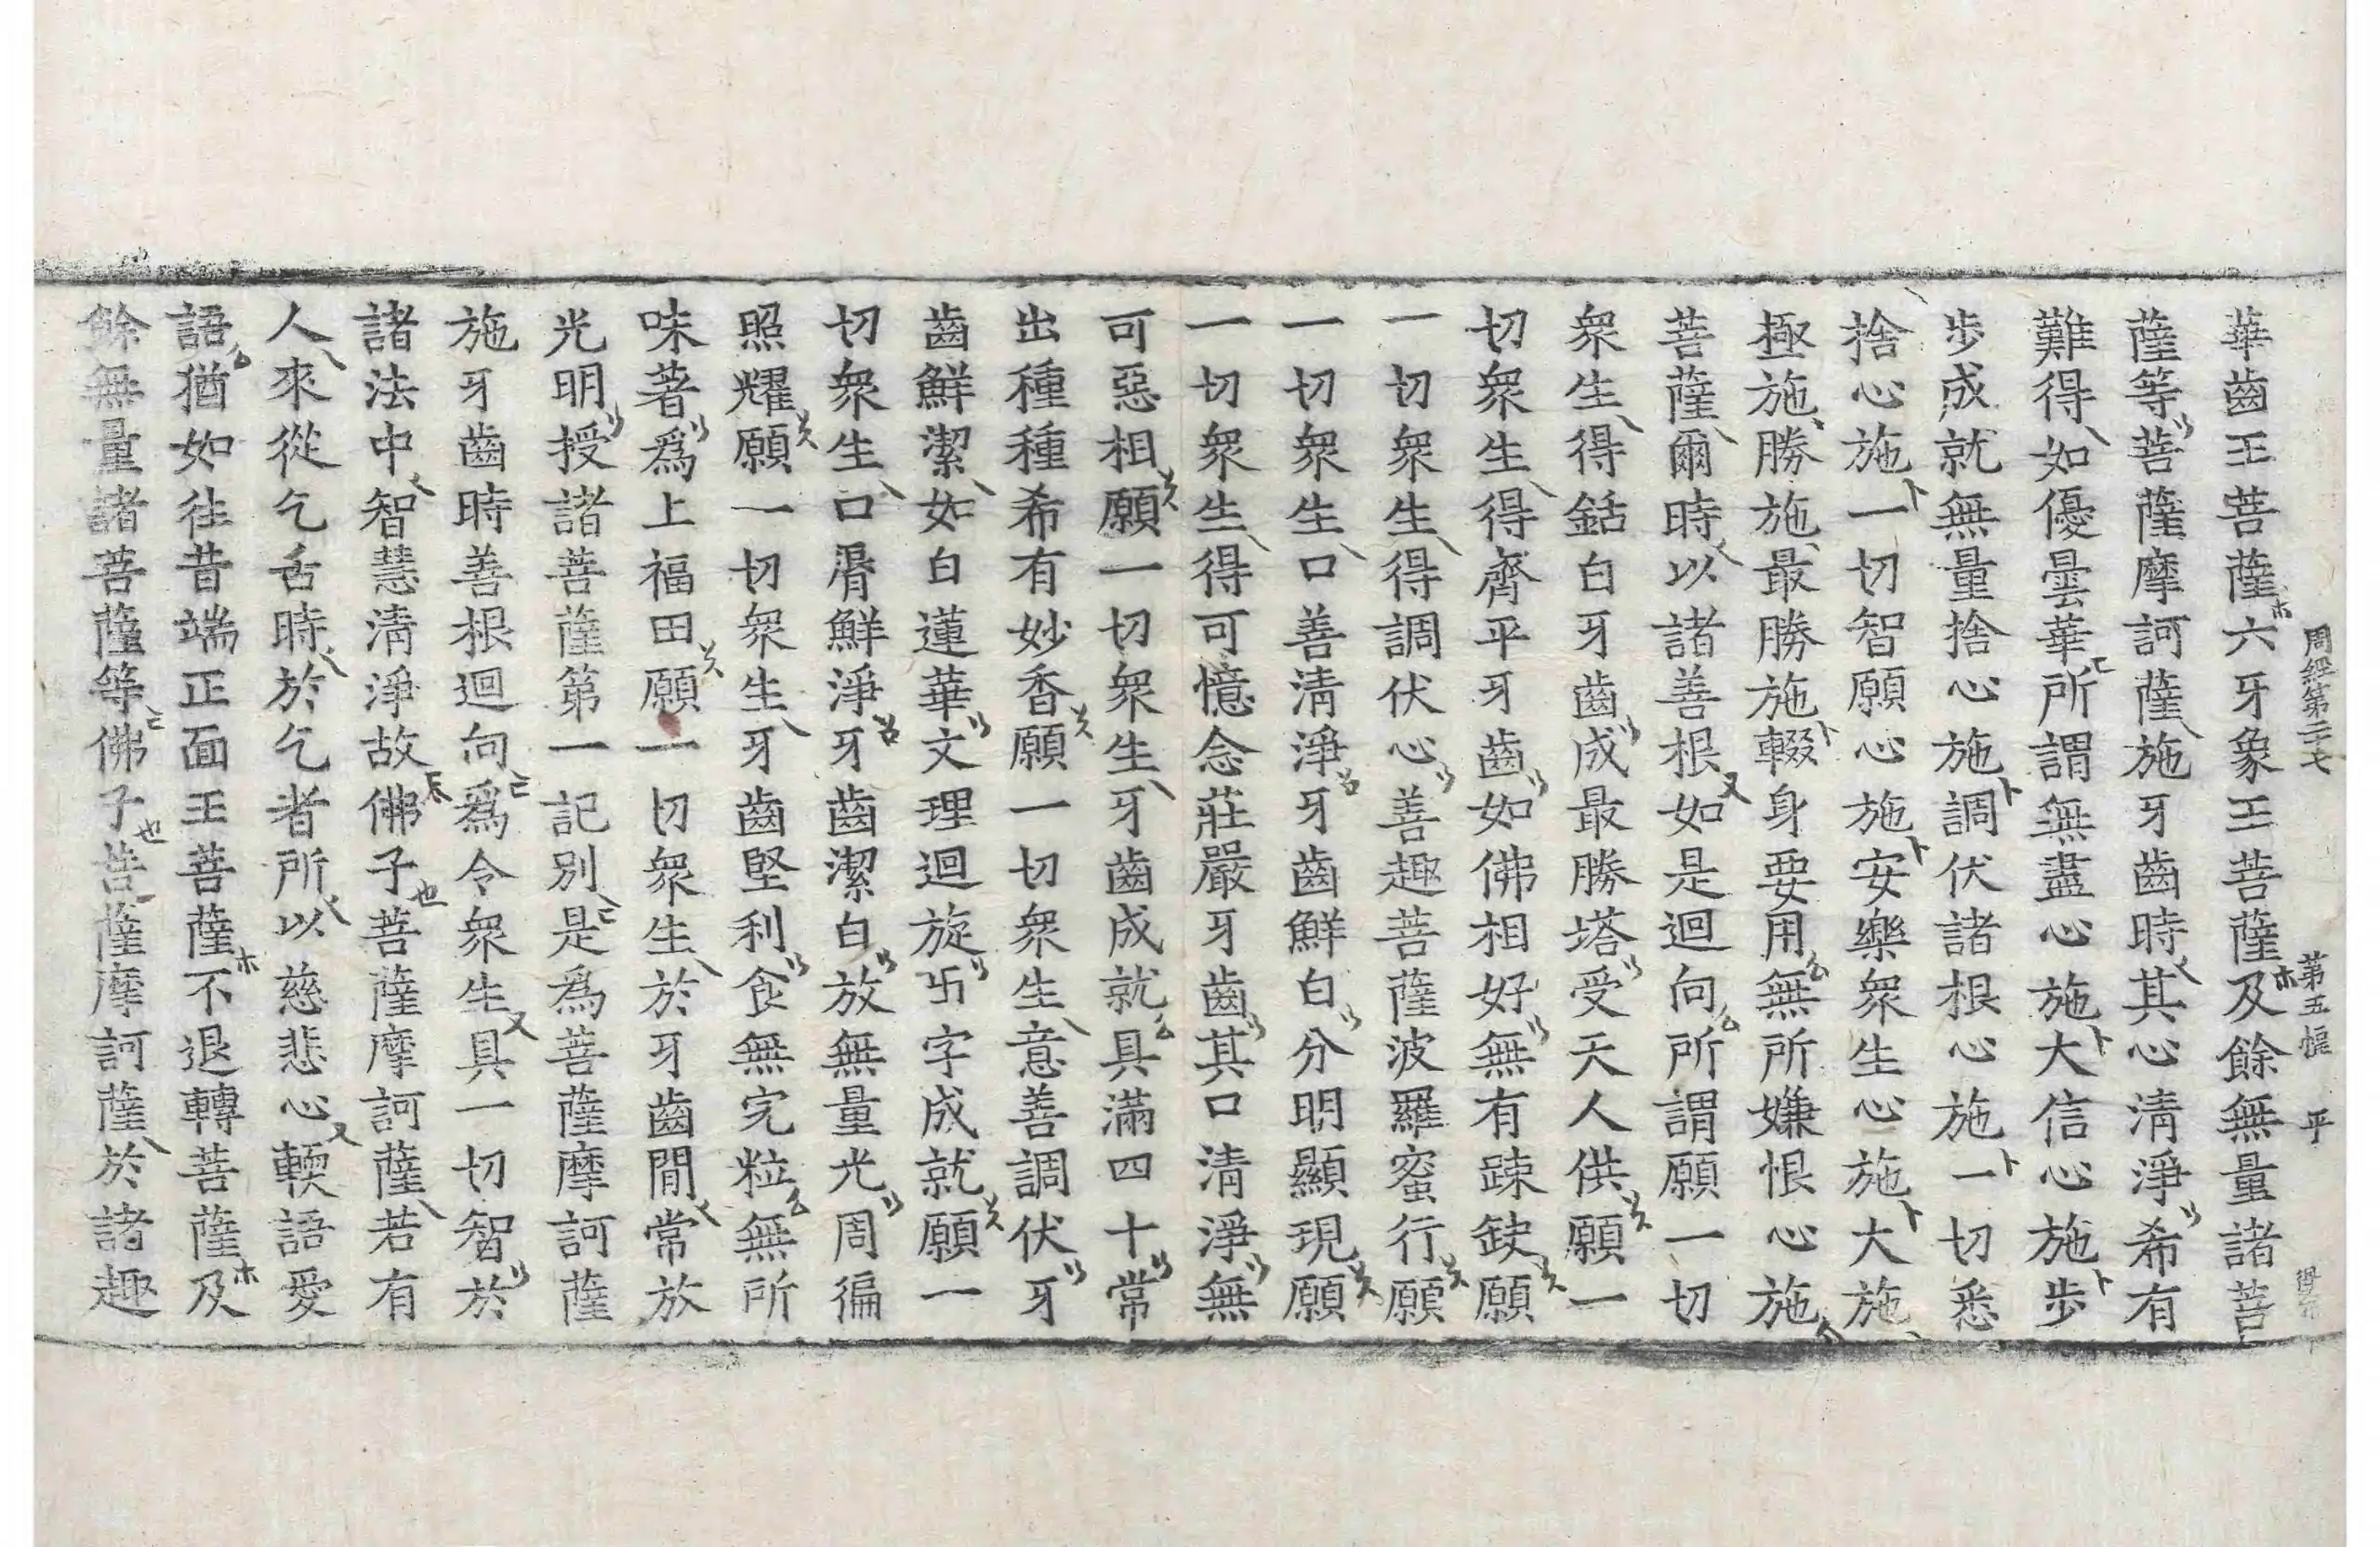 周經第二十七 第五幅 平
華齒王菩薩六牙象王菩薩及餘無量諸菩
薩等菩薩摩訶薩施牙齒時其心清淨希有
難得如優曇華所謂無盡心施大信心施步
步成就無量捨心施調伏諸根心施一切悉
捨心施一切智願心施安樂衆生心施大施
極施勝施最勝施輟身要用無所嫌恨心施
菩薩爾時以諸善根如是迴向所謂願一切
衆生得銛白牙齒成最勝塔受天人供願一
切衆生得齊平牙齒如佛相好無有踈缺願
一切衆生得調伏心善趣菩薩波羅蜜行願
一切衆生口善清淨牙齒鮮白分明顯現願
一切衆生得可憶念莊嚴牙齒其口清淨無
可惡相願一切衆生牙齒成就具滿四十常
出種種希有妙香願一切衆生意善調伏牙
齒鮮潔如白蓮華文理迴旋卐字成就願一
切衆生口脣鮮淨牙齒潔白放無量光周徧
照耀願一切衆生牙齒堅利食無完粒無所
味著爲上福田願一切衆生於牙齒間常放
光明授諸菩薩第一記別是爲菩薩摩訶薩
施牙齒時善根迴向爲令衆生具一切智於
諸法中智慧清淨故佛子菩薩摩訶薩若有
人來從乞舌時於乞者所以慈悲心輭語愛
語猶如往昔端正面王菩薩不退轉菩薩及
餘無量諸菩薩等佛子菩薩摩訶薩於諸趣